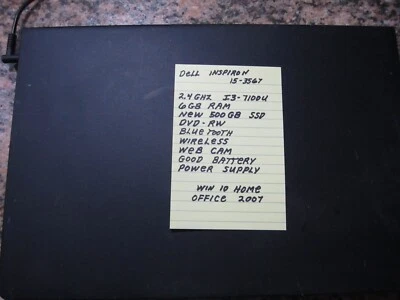 Dell INSPIRON
15-3567
2.4 GHZ I3-7100U
6 GB RAM
NEW 500 GB SSD
DVD-RW
BLUETOOTH
WIRELESS
WEB CAM
GOOD BATTERY
POWER SUPPLY
WIN 10 HOME
OFFICE 2007